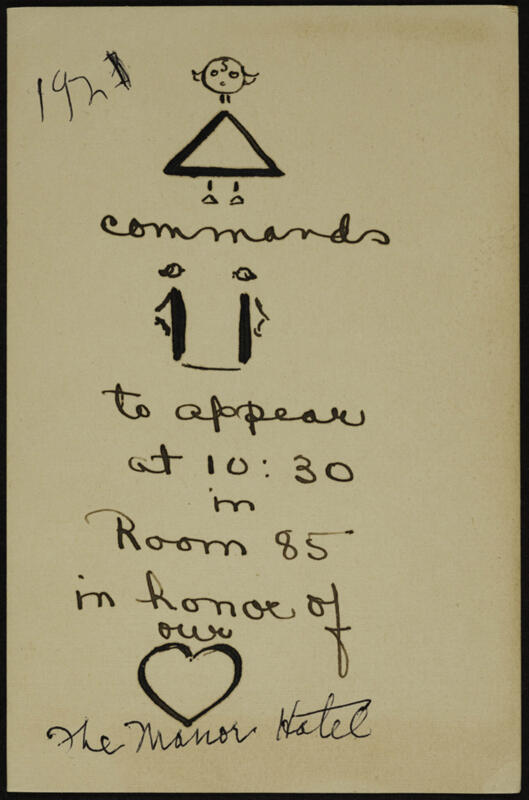 192
commands
to appear
at 10:30
in
Room 85
in honor of
our
The Manor Hotel